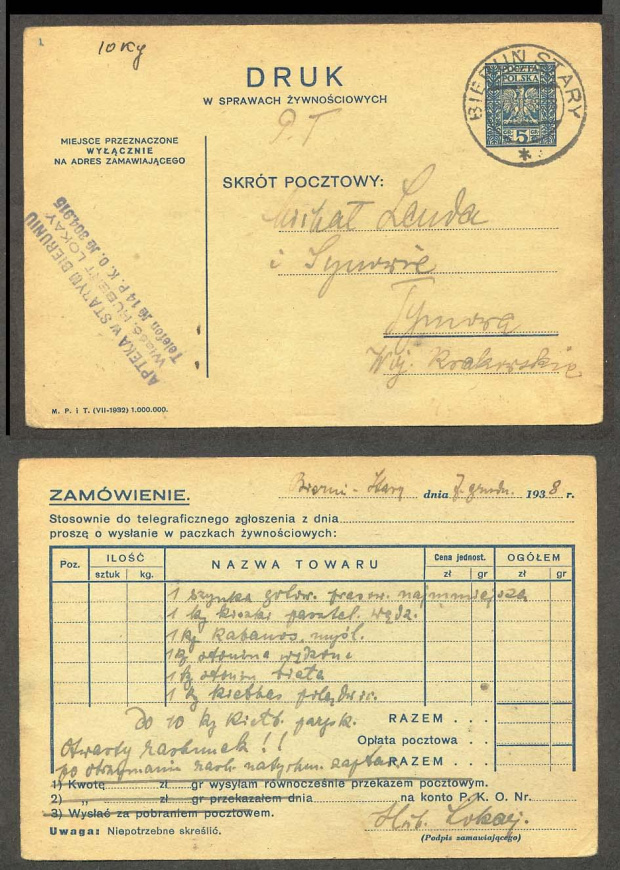 1
10 Kg
DRUK
W SPRAWACH ŻYWNOŚCIOWYCH
BIERUŃ STARY
POCZTA
POLSKA
GR 5 GR
MIEJSCE PRZEZNACZONE
WYŁĄCZNIE
NA ADRES ZAMAWIAJĄCEGO
SKRÓT POCZTOWY:
Michał Landa
i Synowie
Tymowa
Woj. Krakowskie
APTEKA W STARYM BIERUNIU
HUBERT LOKAY
Telefon № 14 P. K. O. № 304.915
M. P. i T. (VII-1932) 1.000.000.
Bieruń-Stary dnia 7. grudn. 1938 r.
ZAMÓWIENIE.
Stosownie do telegraficznego zgłoszenia z dnia
proszę o wysłanie w paczkach żywnościowych:
Poz. ILOŚĆ sztuk kg. NAZWA TOWARU Cena jednost. zł gr OGÓŁEM zł gr
1 szynka gotow. prasow. najmniejsza
1 kg kiszki pasztet. wędz.
1 kg kabanos. myśl.
1 kg słonina wędzone
1 kg słoniny biała
1 kg kiełbas polędwic.
Do 10 kg kiełb. parysk.
RAZEM . . .
Otwarty rachunek!!
Opłata pocztowa . . .
po otrzymaniu rach. natychm.
RAZEM . . .
1) Kwotę zł gr wysyłam równocześnie przekazem pocztowym.
2) „ zł gr przekazałem dnia na konto P. K. O. Nr.
3) Wysłać za pobraniem pocztowem.
Hub. Lokay.
Uwaga: Niepotrzebne skreślić.
(Podpis zamawiającego)